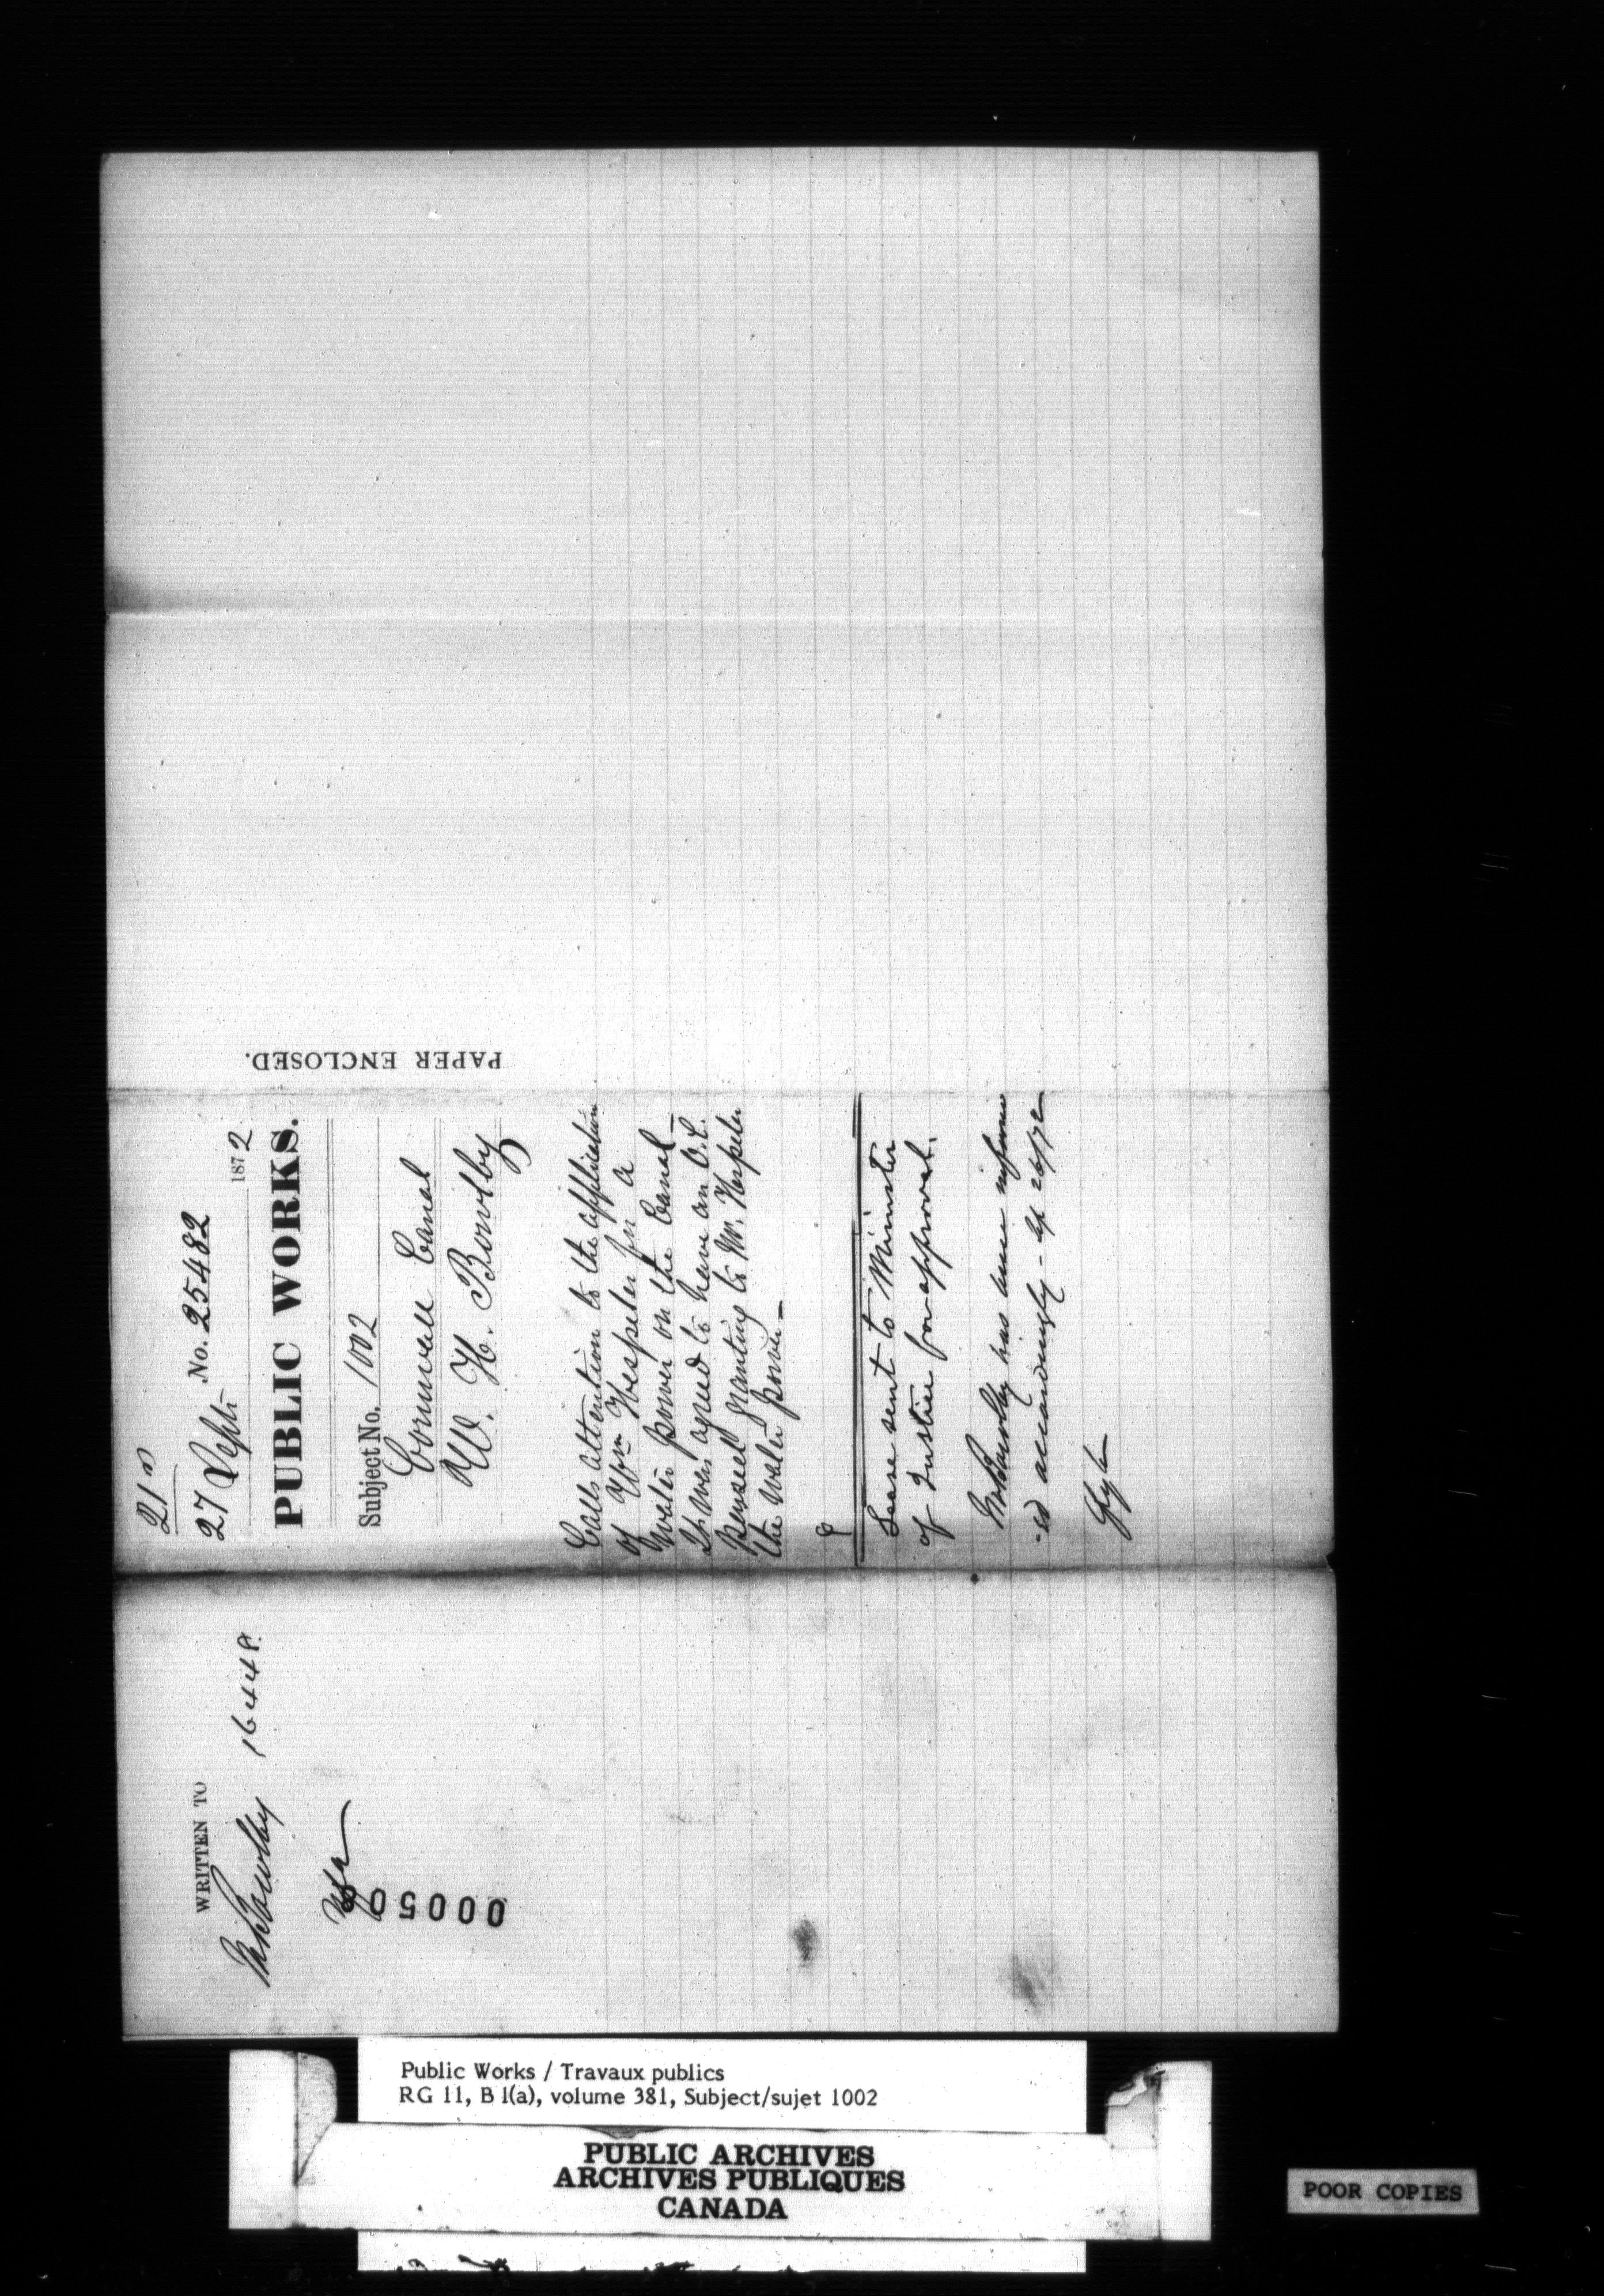 21
27 Sept. No. 25482
1872
PUBLIC WORKS.
Subject No. 1002
Cornwall Canal
W. H. Bowlby
Calls attention to the application
of Wm Hespeler for a
water power on the Canal –
It was agreed to have an O.C.
passed granting to Mr. Hespeler
the water power –
Lease sent to Minister
of Justice for approval.
Mr Bowlby has been inform
-ed accordingly – 26/72
PAPER ENCLOSED.
WRITTEN TO
Mr Bowlby 16448
00050
Public Works / Travaux publics
RG 11, B 1(a), volume 381, Subject/sujet 1002
PUBLIC ARCHIVES
ARCHIVES PUBLIQUES
CANADA
POOR COPIES